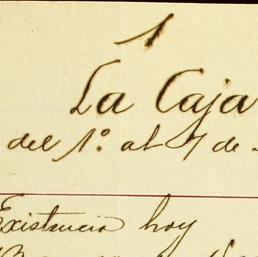 1
La Caja
del 1º. al 7 de
Existencia hoy